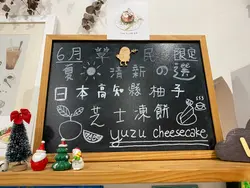 6月 草 民族限定
夏 清新の選
日本高知縣柚子
芝士凍餅
yuzu cheesecake